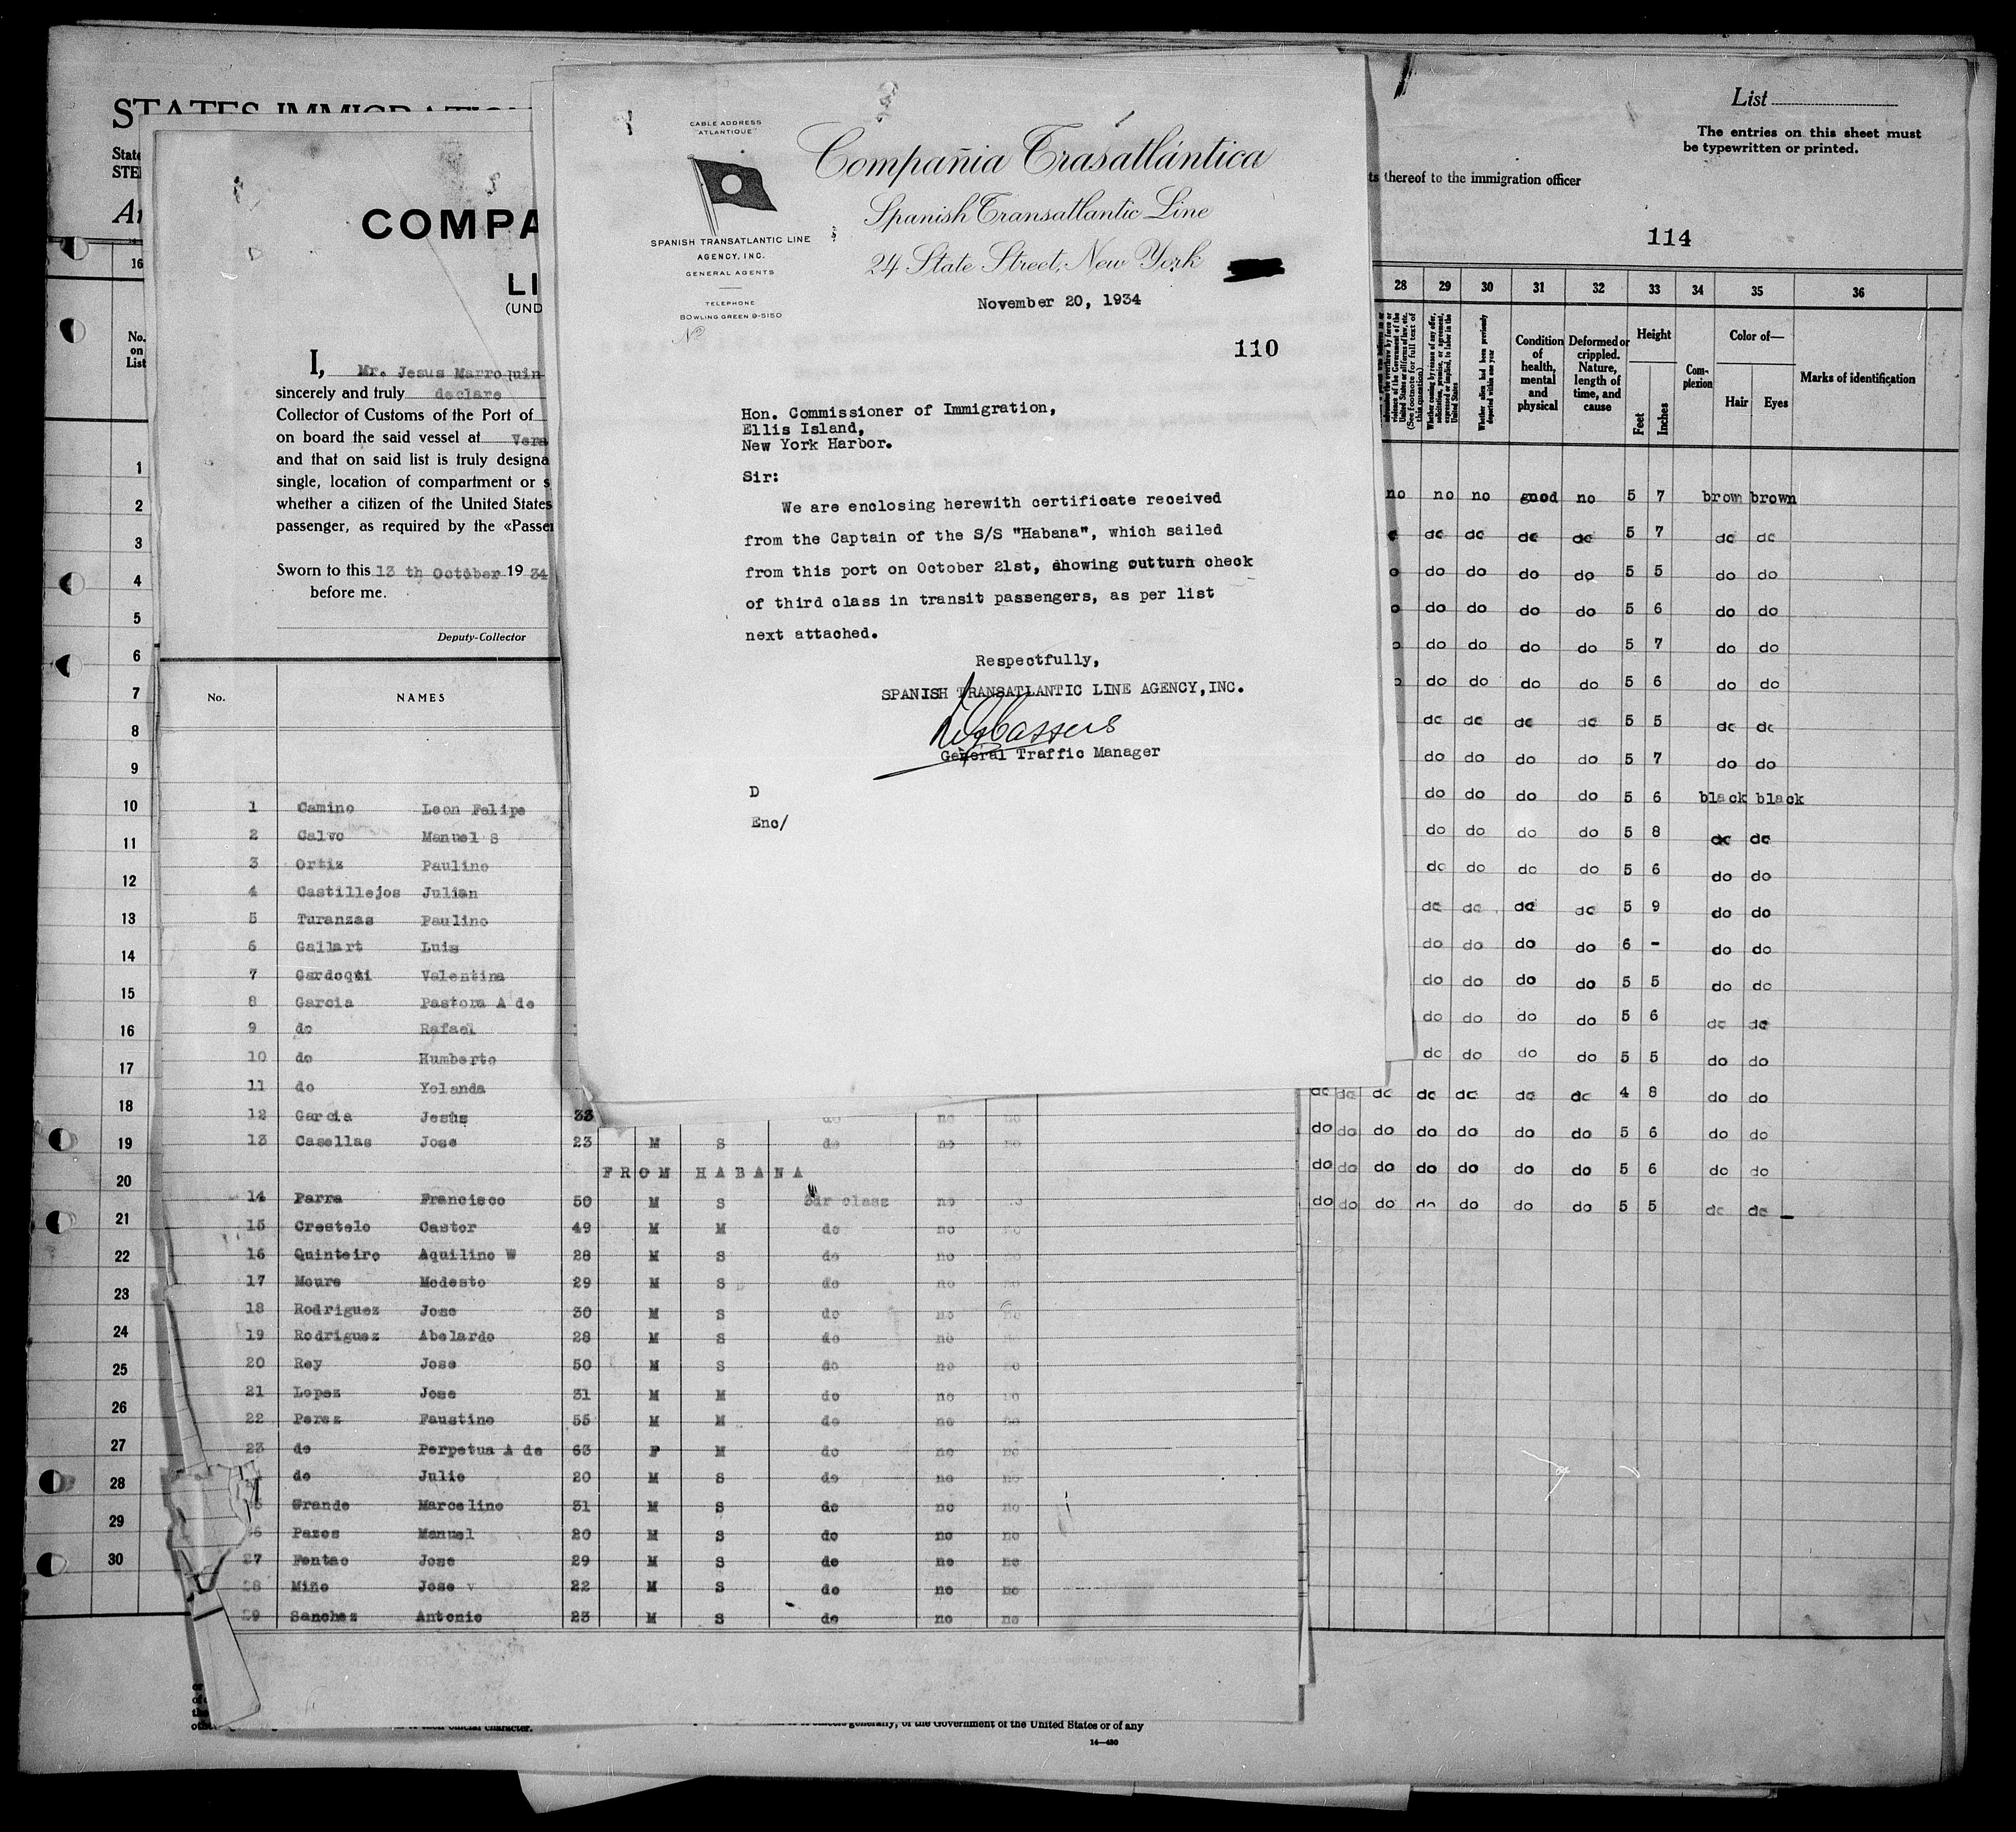 CABLE ADDRESS
"ATLANTIQUE"
Compañia Trasatlántica
Spanish Transatlantic Line
24 State Street, New York
SPANISH TRANSATLANTIC LINE
AGENCY, INC.
GENERAL AGENTS
TELEPHONE
BOWLING GREEN 9-5150
Nº
November 20, 1934
110
Hon. Commissioner of Immigration,
Ellis Island,
New York Harbor.
Sir:
We are enclosing herewith certificate received
from the Captain of the S/S "Habana", which sailed
from this port on October 21st, showing outturn check
of third class in transit passengers, as per list
next attached.
Respectfully,
SPANISH TRANSATLANTIC LINE AGENCY, INC.
General Traffic Manager
D
Enc/
STATES IMMIGRATION
State
STE
16
No.
on
List
1
2
3
4
5
6
7
8
9
10
11
12
13
14
15
16
17
18
19
20
21
22
23
24
25
26
27
28
29
30
COMPA
LI
(UND
I, Mr. Jesus Marroquin
sincerely and truly declare
Collector of Customs of the Port of
on board the said vessel at Vera
and that on said list is truly designa
single, location of compartment or s
whether a citizen of the United States
passenger, as required by the «Passe
Sworn to this 13 th October 1934
before me.
Deputy-Collector
No. NAMES
1 Camino Leon Felipe
2 Calvo Manuel S
3 Ortiz Paulino
4 Castillejos Julian
5 Turanzas Paulino
6 Gallart Luis
7 Gardoqui Valentina
8 Garcia Pastora A de
9 do Rafael
10 do Humberto
11 do Yolanda
12 Garcia Jesus 33 do no no
13 Casellas Jose 23 M S do no no
FROM HABANA
14 Parra Francisco 50 M S 3dr class no no
15 Crestelo Castor 49 M M do no no
16 Quinteiro Aquilino W 28 M S do no no
17 Moure Modesto 29 M S do no no
18 Rodriguez Jose 30 M S do no no
19 Rodriguez Abelardo 28 M S do no no
20 Rey Jose 50 M S do no no
21 Lopez Jose 31 M M do no no
22 Perez Faustino 55 M M do no no
23 do Perpetua A de 63 F M do no no
do Julio 20 M S do no no
Grande Marcelino 31 M S do no no
26 Pazos Manuel 20 M S do no no
27 Fentao Jose 29 M S do no no
28 Miño Jose V 22 M S do no no
29 Sanchez Antonio 23 M S do no no
List
The entries on this sheet must
be typewritten or printed.
ts thereof to the immigration officer
114
28 29 30 31 32 33 34 35 36
Whether alien had been previously deported within one year
Condition of health, mental and physical
Deformed or crippled. Nature, length of time, and cause
Height
Feet Inches
Complexion
Color of—
Hair Eyes
Marks of identification
no no no good no 5 7 brown brown
do do do do 5 7 do do
do do do do 5 5 do do
do do do do 5 6 do do
do do do do 5 7 do do
do do do do 5 6 do do
do do do do 5 5 do do
do do do do 5 7 do do
do do do do 5 6 black black
do do do do 5 8 do do
do do do do 5 6 do do
do do do do 5 9 do do
do do do do 6 - do do
do do do do 5 5 do do
do do do do 5 6 do do
do do do do 5 5 do do
do do do do do do do 4 8 do do
do do do do do do do 5 6 do do
do do do do do do do 5 6 do do
do do do do do do do 5 5 do do
generally, of the Government of the United States or of any
their official character.
14—430